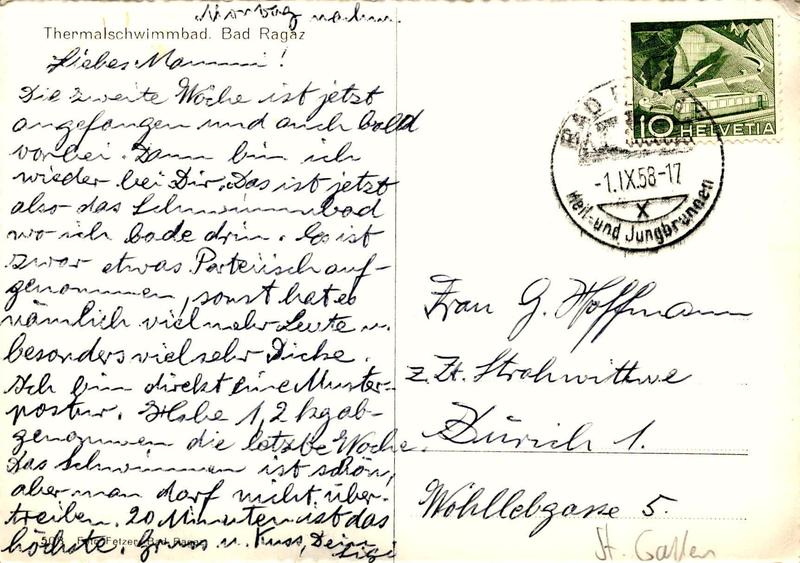 Montag nachm.
Thermalschwimmbad. Bad Ragaz
Liebes Mammi!
Die zweite Woche ist jetzt
angefangen und auch bald
vorbei. Dann bin ich
wieder bei Dir. Das ist jetzt
also das Schwimmbad
wo ich bade drin. Es ist
zwar etwas Parteiisch auf-
genommen, sonst hat es
nämlich viel mehr Leute u.
besonders viel sehr Dicke.
Ich bin direkt eine Muster-
postur. Habe 1,2 kg ab-
genommen die letzte Woche.
Das Schwimmen ist schön,
aber man darf nicht über-
treiben. 20 Minuten ist das
höchste. Gruss u. Kuss, Dein
Gigi
Fetzer, Bad Ragaz
10 HELVETIA
BAD
-1.IX.58-17
X
Heil- und Jungbrunnen
Frau G. Hoffmann
z. Zt. Strohwittwe
Zürich 1.
Wohllebgasse 5.
St. Gallen